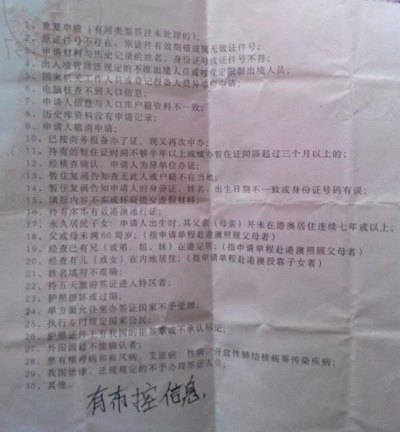 1、重复申请（有同类型签注未处理的）；
2、原证件号不存在、原证件有效期错或属无效证件号；
3、申请材料与历史记录的姓名、身份号或证件号不符；
4、出入境管理法规定的不准出境人员或按规定限制出境人员；
5、国家机关工作人员或登记报备人员异常申请；
6、电脑核查不到人口信息；
7、申请人信息与人口库户籍资料不一致；
8、历史库资料没有申请记录；
9、申请人撤消申请；
10、已按商务报备办了证，现又再次申办；
11、持有的暂住证时间不够半年以上或续办暂住证间隔超过三个月以上的；
12、经核查确认，申请人为异单位办证；
13、暂住复函告知查无此人或户籍不在当地；
14、暂住复函告知申请人的身份证、姓名、出生日期不一致或身份证号码有误；
15、填报内容不实或怀疑提交虚假材料；
16、持有多本有效港澳通行证；
17、永久居民子女：申请人出生时，其父亲（母亲）并未在港澳居住连续七年或以上；
18、父或母未满60周岁；（指申请单程赴港澳照顾父母者）
19、经查已有兄（或弟、姐、妹）在港定居；（指申请单程赴港澳照顾父母者）
20、经查有儿（或女）在内地居住；（指申请单程赴港澳投靠子女者）
21、姓名填写不准确；
22、持五天旅游签证进入特区者；
23、护照损坏或过期；
24、单方面允许免办签证国家不予受理；
25、执行专门规定国家公民；
26、护照证件上有我国的拒签章或不承认标记；
27、外国国籍不能确认者；
28、患有精神病和麻风病，艾滋病，性病，开放性肺结核病等传染疾病；
29、我国法律、法规规定的不予办理签证人员；
30、其他。
有布控信息.